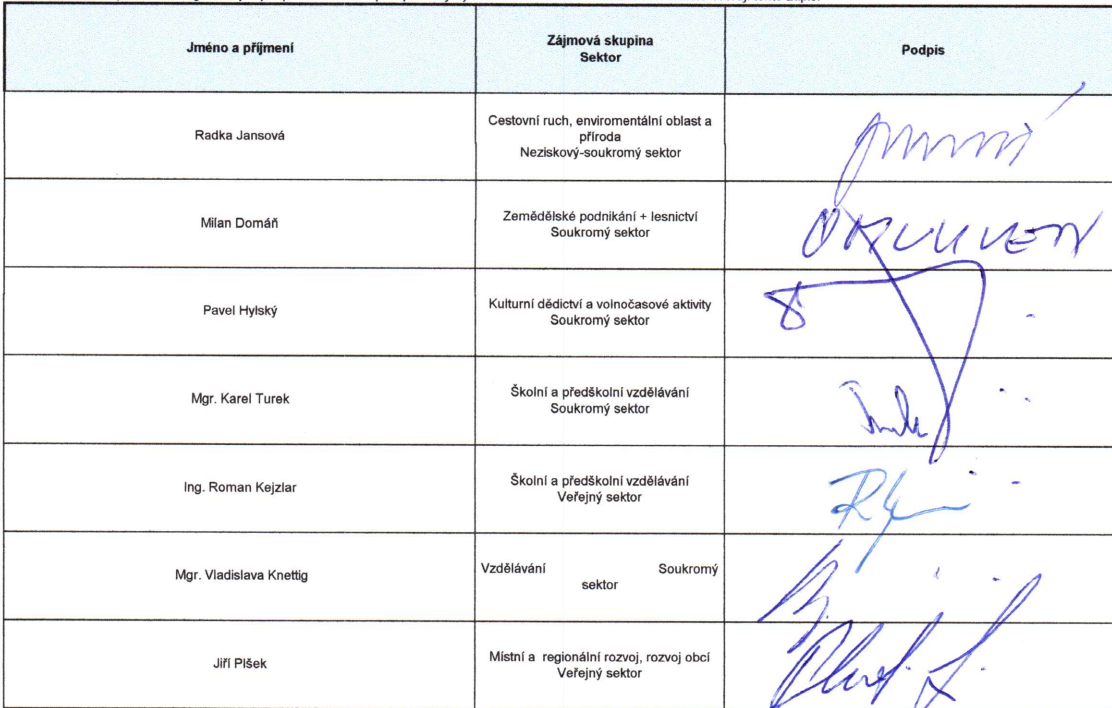 Jméno a příjmení
Zájmová skupina
Sektor
Podpis
Radka Jansová
Cestovní ruch, enviromentální oblast a
příroda
Neziskový-soukromý sektor
Milan Domáň
Zemědělské podnikání + lesnictví
Soukromý sektor
Pavel Hylský
Kulturní dědictví a volnočasové aktivity
Soukromý sektor
Mgr. Karel Turek
Školní a předškolní vzdělávání
Soukromý sektor
Ing. Roman Kejzlar
Školní a předškolní vzdělávání
Veřejný sektor
Mgr. Vladislava Knettig
Vzdělávání Soukromý
sektor
Jiří Plšek
Místní a regionální rozvoj, rozvoj obcí
Veřejný sektor